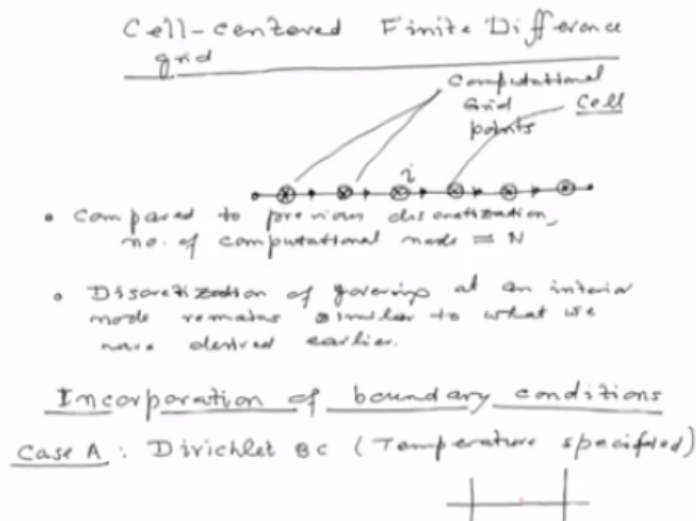 Cell-centered Finite Difference
grid
Computational
Grid
points
Cell
i
• Compared to previous discretization,
no. of computational node = N
• Discretization of governing at an interior
node remains similar to what we
have derived earlier.
Incorporation of boundary conditions
Case A : Dirichlet BC (Temperature specified)